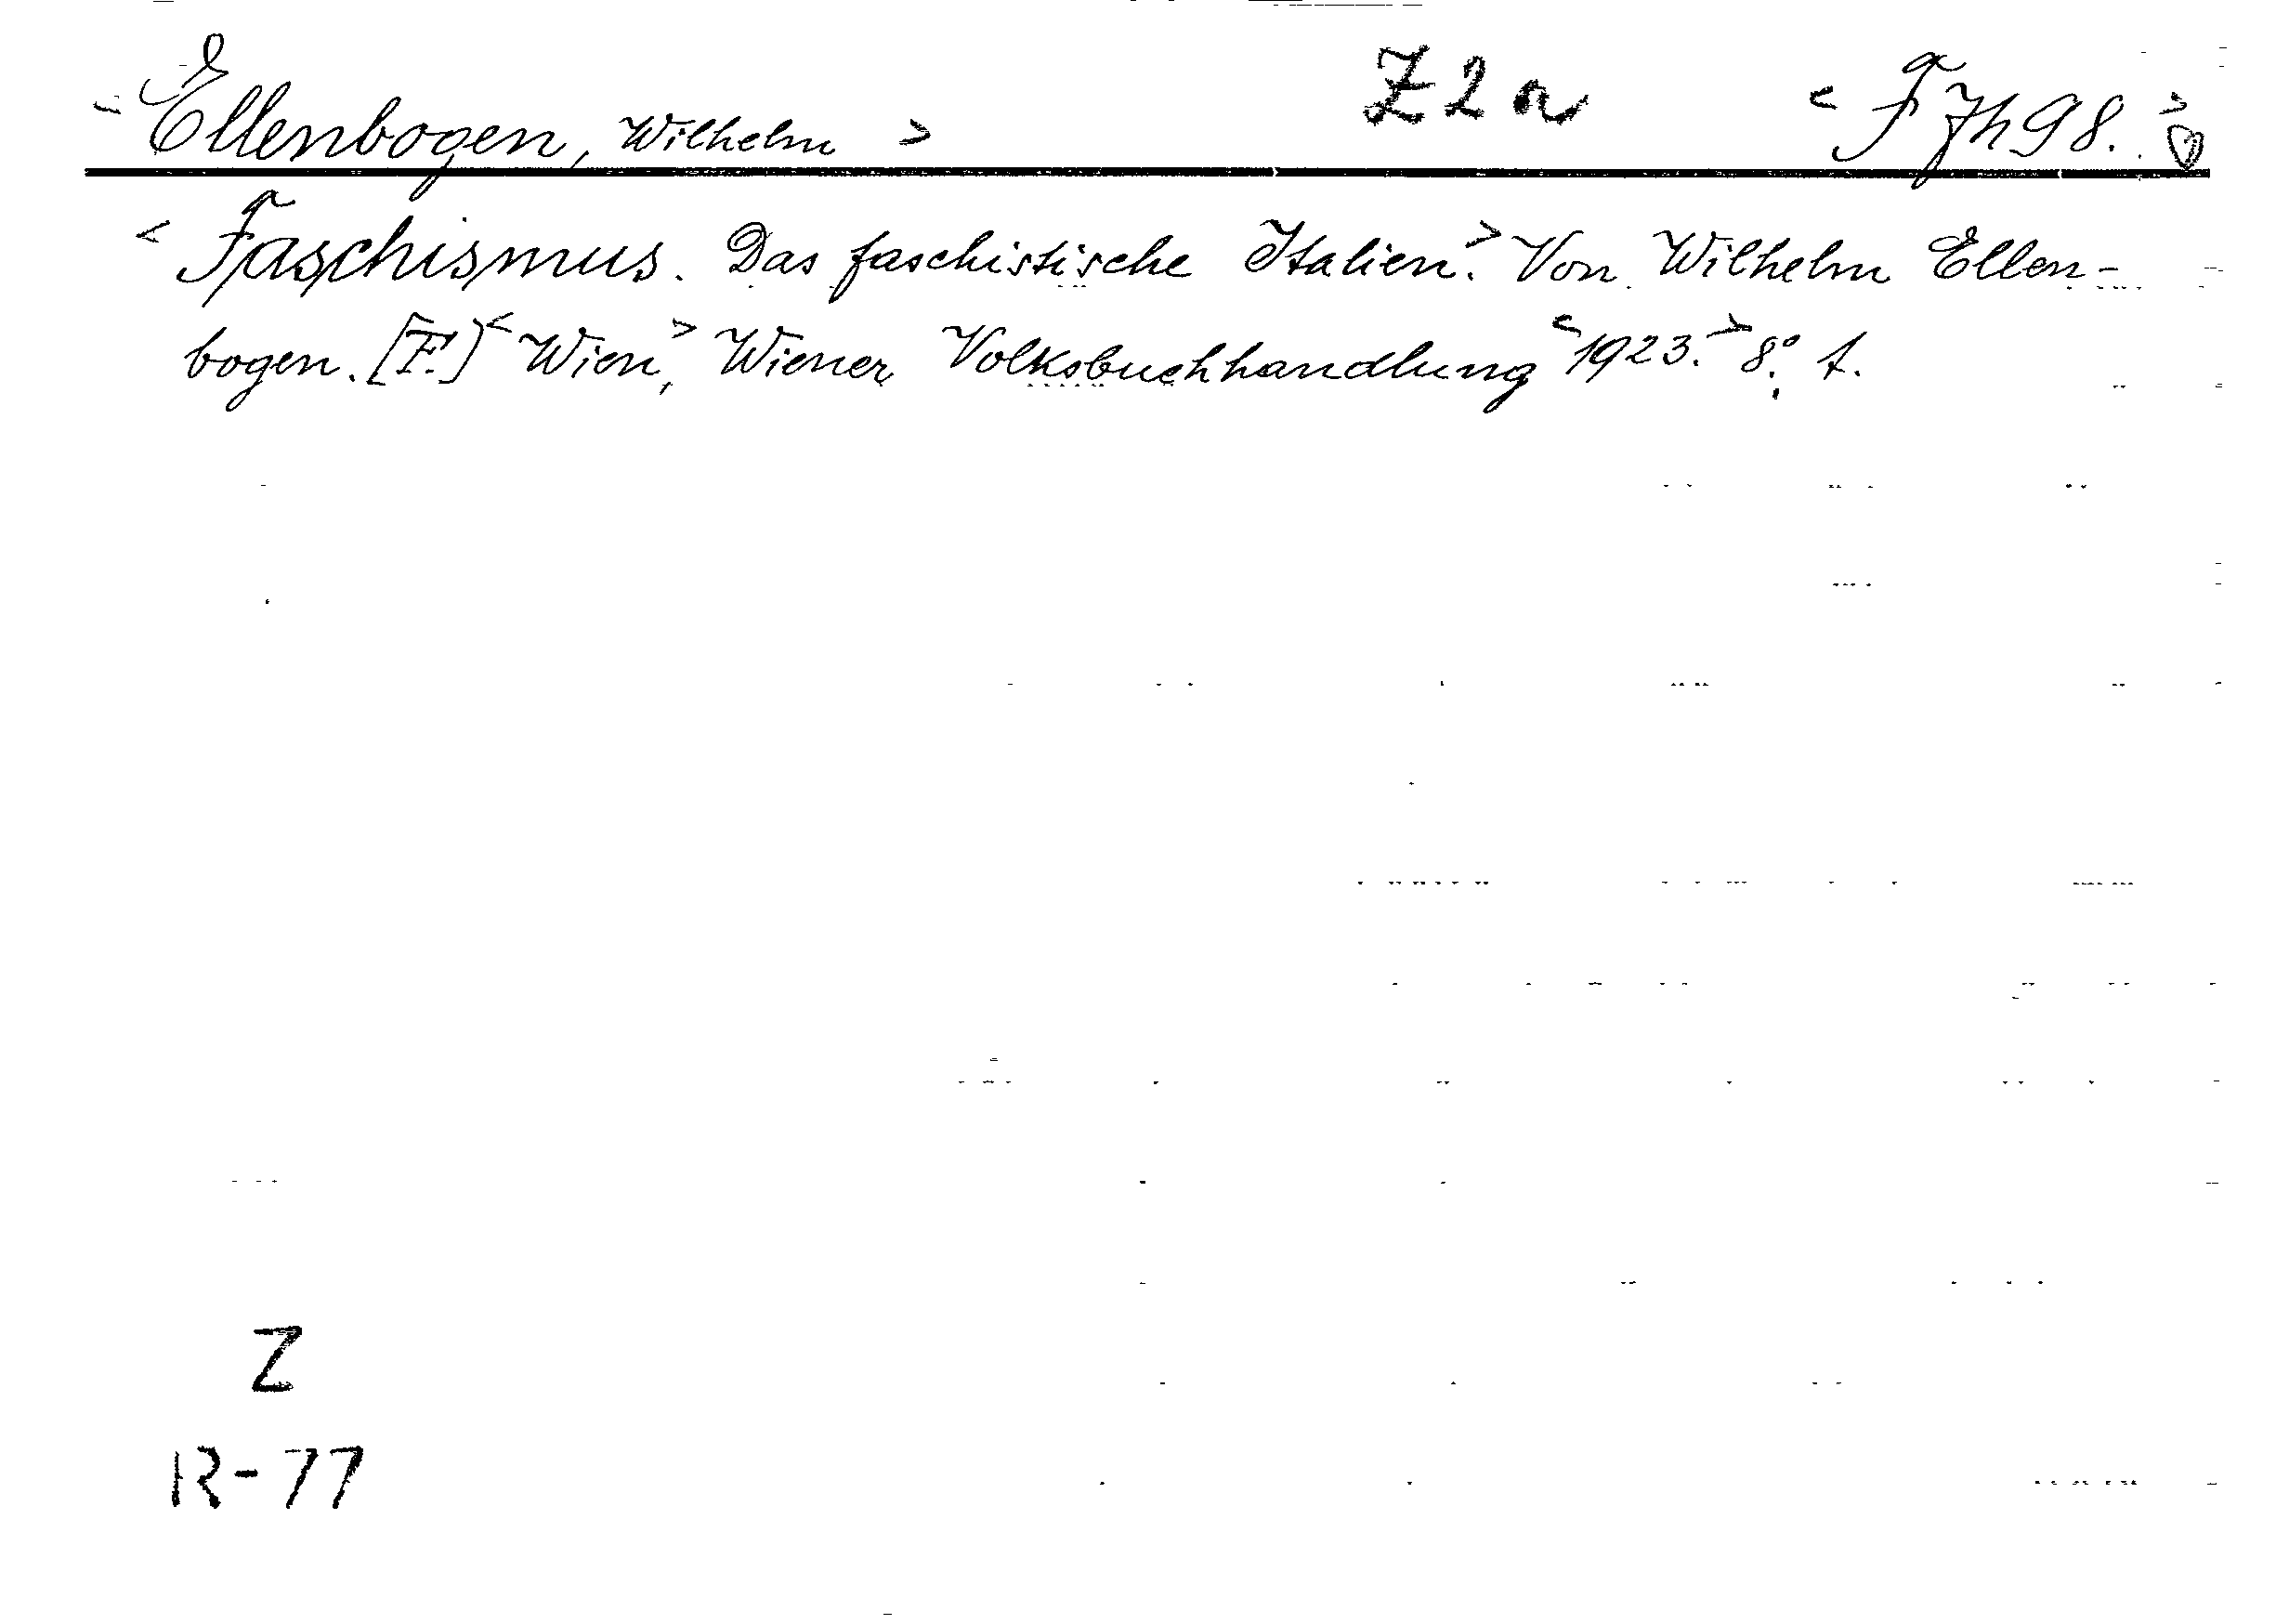 < Ellenbogen, Wilhelm > Z2a < F7h98. >
< Faschismus. Das faschistische Italien.> Von Wilhelm Ellen-
bogen. [F.] < Wien,> Wiener Volksbuchhandlung <1923.> 8°, 1.
Z
R-77